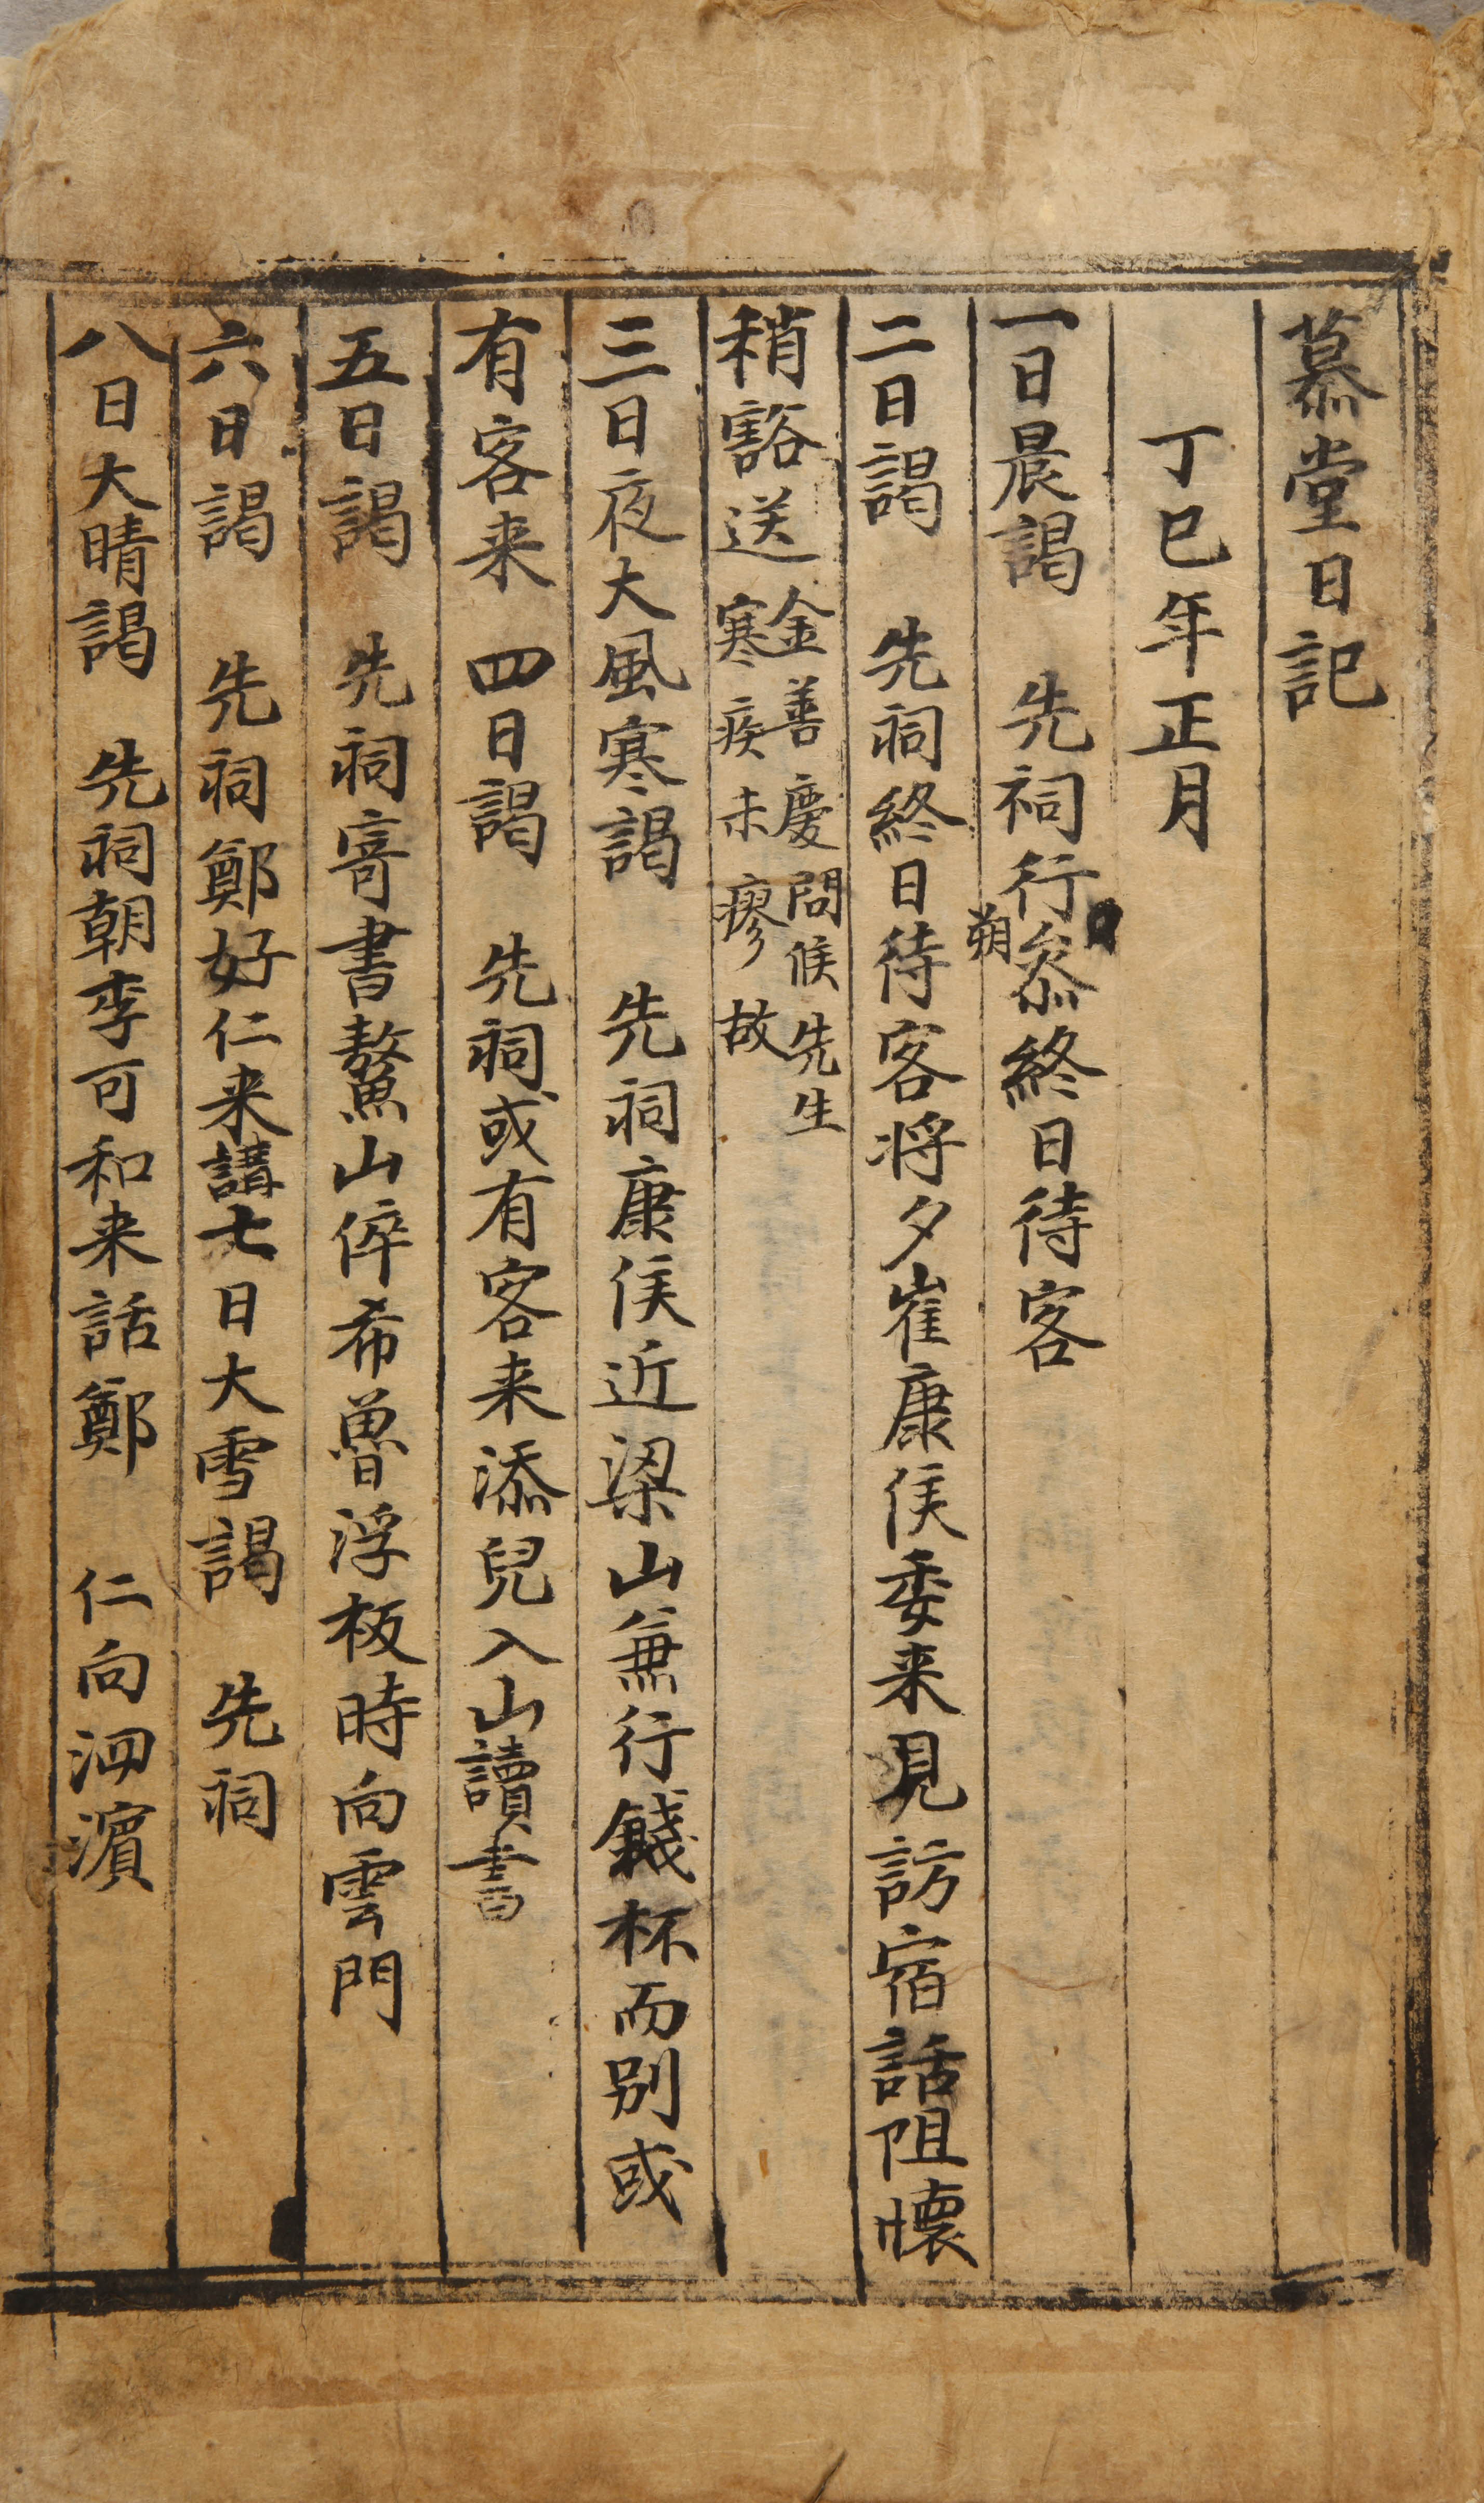 慕堂日記
丁巳年正月
一日晨謁 先祠行朔叅終日待客
二日謁 先祠終日待客将夕崔康侯委来見訪宿話阻懐
稍豁送金善慶問候先生寒疾未廖故
三日夜大風寒謁 先祠康侯近梁山兼行餞杯而别或
有客来 四日謁 先祠或有客来添兒入山讀書
五日謁 先祠寄書鰲山倅希魯浮板時向雲門
六日謁 先祠鄭好仁来講七日大雪謁 先祠
八日大晴謁 先祠朝李可和来話鄭 仁向泗濱